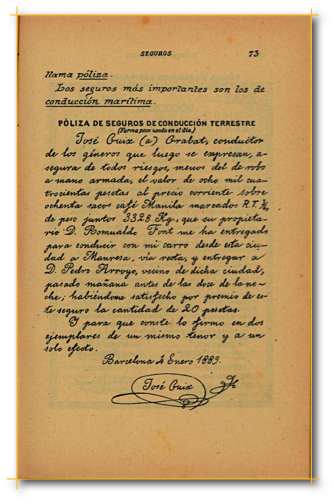 SEGUROS 73
llama póliza.
Los seguros más importantes son los de
conducción marítima.
PÓLIZA DE SEGUROS DE CONDUCCIÓN TERRESTRE
(Forma poco usada en el día.)
José Guix (a) Grabat, conductor
de los géneros que luego se expresan, a-
segura de todos riesgos, menos del de robo
a mano armada, el valor de ocho mil cua-
trocientas pesetas al precio corriente sobre
ochenta sacos café Manila marcados R. F.
de peso juntos 3328 Kg., que su propieta-
rio D. Romualdo Font me ha entregado
para conducir con mi carro desde esta ciu-
dad a Manresa, vía recta, y entregar a
D. Pedro Arroyo, vecino de dicha ciudad,
pasado mañana antes de las doce de la no-
che; habiéndome satisfecho por premio de es-
te seguro la cantidad de 20 pesetas.
Y para que conste lo firmo en dos
ejemplares de un mismo tenor y a un
solo efecto.
Barcelona 4 Enero 1889.
José Guix